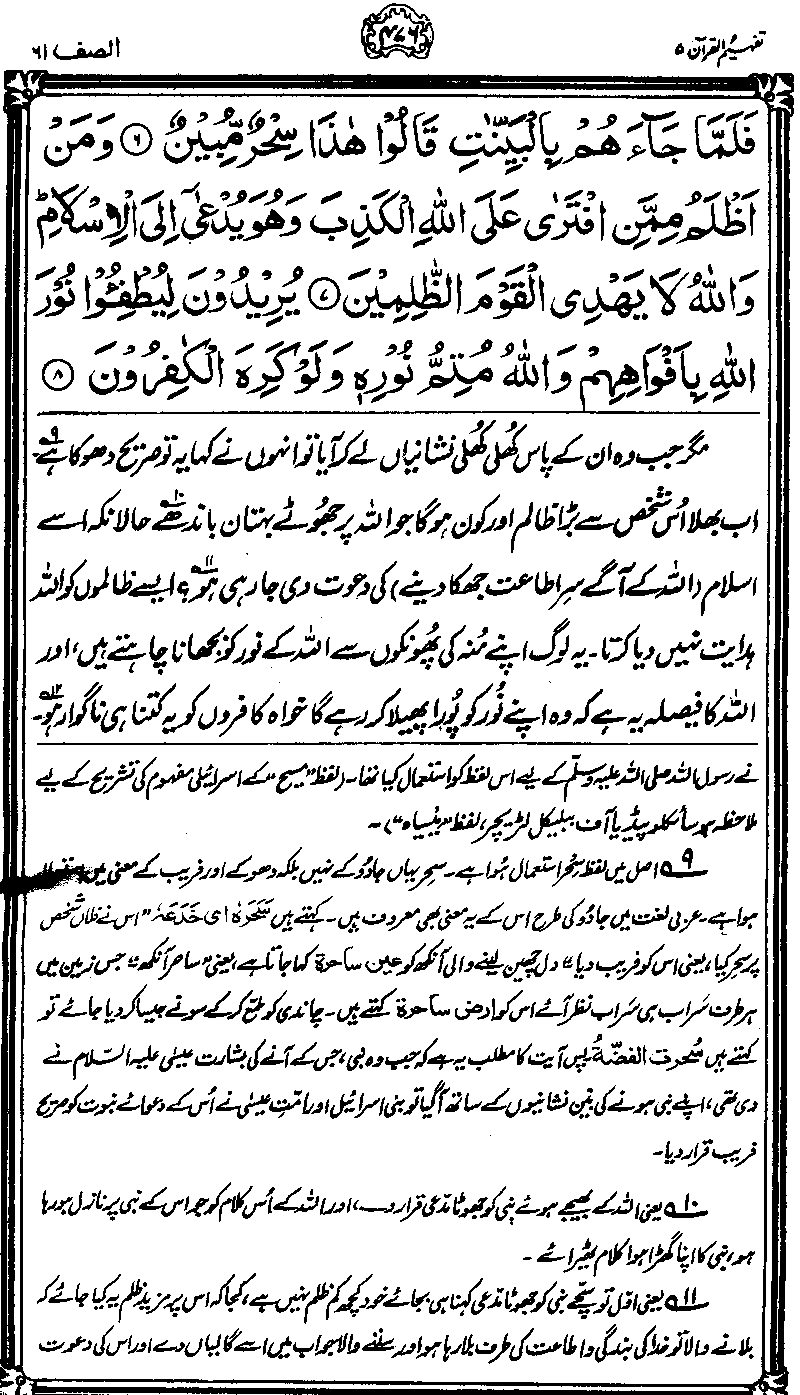 تفہیم القرآن ۵
۴۷۶
الصف ۶۱
فَلَمَّا جَآءَهُمْ بِالْبَيِّنٰتِ قَالُوْا هٰذَا سِحْرٌ مُّبِيْنٌ ﴿۶﴾ وَمَنْ
اَظْلَمُ مِمَّنِ افْتَرٰى عَلَى اللّٰهِ الْكَذِبَ وَهُوَ يُدْعٰٓى اِلَى الْاِسْلَامِ ؕ
وَاللّٰهُ لَا يَهْدِى الْقَوْمَ الظّٰلِمِيْنَ ﴿۷﴾ يُرِيْدُوْنَ لِيُطْفِـُٔوْا نُوْرَ
اللّٰهِ بِاَفْوَاهِهِمْ وَاللّٰهُ مُتِمُّ نُوْرِهٖ وَلَوْ كَرِهَ الْكٰفِرُوْنَ ﴿۸﴾
مگر جب وہ ان کے پاس کُھلی کُھلی نشانیاں لے کر آیا تو انہوں نے کہا یہ تو صریح دھوکا ہے۹۔
اب بھلا اُس شخص سے بڑا ظالم اور کون ہو گا جو اللہ پر جھوٹے بہتان باندھے۱۰ حالانکہ اسے
اسلام (اللہ کے آگے سرِ اطاعت جھکا دینے) کی دعوت دی جا رہی ہو۱۱؟ ایسے ظالموں کو اللہ
ہدایت نہیں دیا کرتا۔ یہ لوگ اپنے مُنہ کی پُھونکوں سے اللہ کے نور کو بجھانا چاہتے ہیں، اور
اللہ کا فیصلہ یہ ہے کہ وہ اپنے نُور کو پُورا پھیلا کر رہے گا خواہ کافروں کو یہ کتنا ہی ناگوار ہو۱۲۔
نے رسول اللہ صلی اللہ علیہ وسلّم کے لیے اس لفظ کو استعمال کیا تھا۔ (لفظ ”مسیح“ کے اسرائیلی مفہوم کی تشریح کے لیے
ملاحظہ ہو سائکلوپیڈیا آف ببلیکل لٹریچر، لفظ ”میسیاہ“)۔
۹ اصل میں لفظ سِحْر استعمال ہُوا ہے۔ سِحر یہاں جادُو کے نہیں بلکہ دھوکے اور فریب کے معنی میں استعمال
ہوا ہے۔ عربی لغت میں جادُو کی طرح اس کے یہ معنی بھی معروف ہیں۔ کہتے ہیں سَحَرَهٗ ای خَدَعَهٗ ”اس نے فلاں شخص
پر سِحر کیا، یعنی اس کو فریب دیا“ دل چھین لینے والی آنکھ کو عین ساحرة کہا جاتا ہے، یعنی ”ساحر آنکھ“ جس زمین میں
ہر طرف سَراب ہی سَراب نظر آئے اس کو ارض ساحرة کہتے ہیں۔ چاندی کو ملمّع کر کے سونے جیسا کر دیا جائے تو
کہتے ہیں سُحرت الفضّة۔ پس آیت کا مطلب یہ ہے کہ جب وہ نبی، جس کے آنے کی بشارت عیسٰی علیہ السّلام نے
دی تھی، اپنے نبی ہونے کی بیّن نشانیوں کے ساتھ آ گیا تو بنی اسرائیل اور امّتِ عیسٰی نے اُس کے دعوائے نبوت کو صریح
فریب قرار دیا۔
۱۰ یعنی اللہ کے بھیجے ہوئے نبی کو جھوٹا مدعی قرار دے، اور اللہ کے اُس کلام کو جو اس کے نبی پر نازل ہو رہا
ہو، نبی کا اپنا گھڑا ہوا کلام ٹھیرائے۔
۱۱ یعنی اوّل تو سچّے نبی کو جھوٹا مدعی کہنا ہی بجائے خود کچھ کم ظلم نہیں ہے، کجا کہ اس پر مزید ظلم یہ کیا جائے کہ
بلانے والا تو خدا کی بندگی و اطاعت کی طرف بلا رہا ہو اور سننے والا جواب میں اسے گالیاں دے اور اس کی دعوت